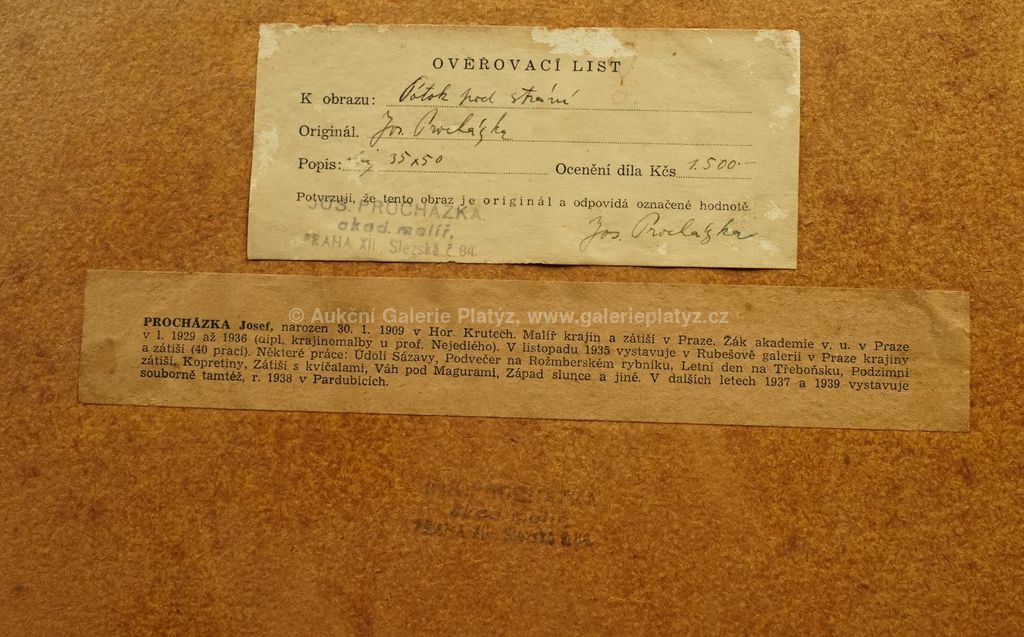 OVĚŘOVACÍ LIST
K obrazu: Potok pod strání
Originál. Jos. Procházka
Popis: olej 35x50 Ocenění díla Kčs 1.500.-
Potvrzuji, že tento obraz je originál a odpovídá označené hodnotě.
JOS. PROCHÁZKA
akad. malíř,
PRAHA XII., Slezská č. 84.
Jos. Procházka
© Aukční Galerie Platýz, www.galerieplatyz.cz
PROCHÁZKA Josef, narozen 30. 1. 1909 v Hor. Krutech. Malíř krajin a zátiší v Praze. Žák akademie v. u. v Praze
v l. 1929 až 1936 (dipl. krajinomalby u prof. Nejedlého). V listopadu 1935 vystavuje v Rubešově galerii v Praze krajiny
a zátiší (40 prací). Některé práce: Údolí Sázavy, Podvečer na Rožmberském rybníku, Letní den na Třeboňsku, Podzimní
zátiší, Kopretiny, Zátiší s kvíčalami, Váh pod Magurami, Západ slunce a jiné. V dalších letech 1937 a 1939 vystavuje
souborně tamtéž, r. 1938 v Pardubicích.
JOS. PROCHÁZKA
akad. malíř,
PRAHA XII., Slezská č. 84.